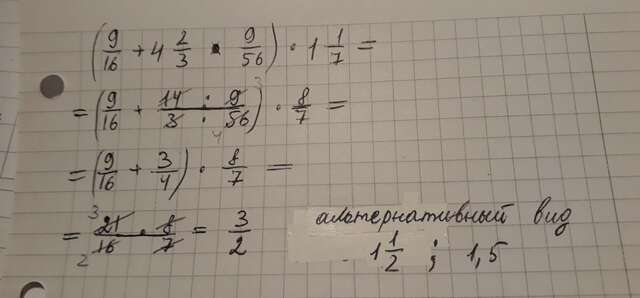 (9/16 + 4 2/3 · 9/56) · 1 1/7 =
= (9/16 + 14 · 9/3 · 56) 3 4 · 8/7 =
= (9/16 + 3/4) · 8/7 =
= 3 21 · 8/16 · 7 2 = 3/2 альтернативный вид
1 1/2 ; 1,5